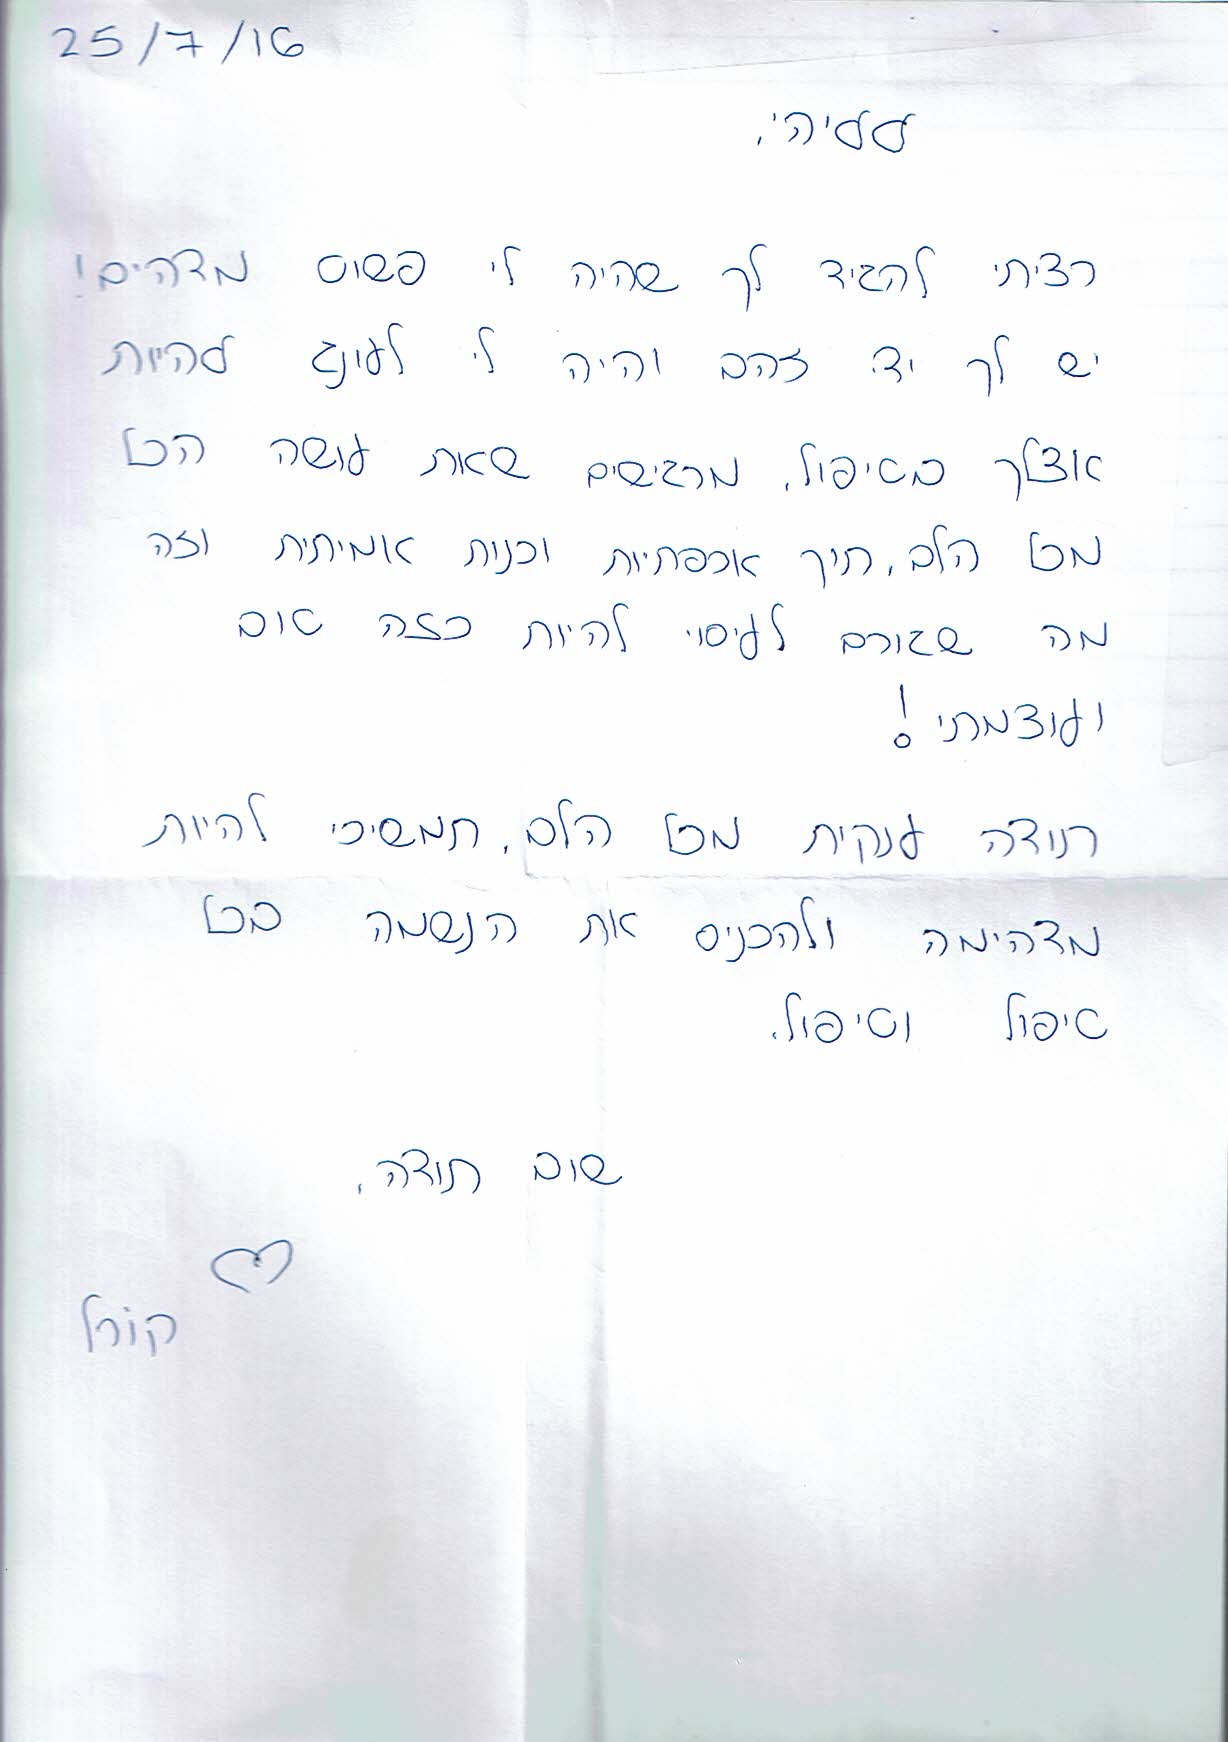 25/7/16
לליה׳,
רציתי להגיד לך שהיה לי פשוט מדהים!
יש לך יד זהב והיה לי לעונג להיות
אצלך בטיפול. מרגישים שאת עושה הכל
מכל הלב, תוך אכפתיות וכנות אמיתית וזה
מה שגורם לעיסוי להיות כזה טוב
ועוצמתי!
תודה ענקית מכל הלב, תמשיכי להיות
מדהימה ולהכניס את הנשמה בכל
טיפול וטיפול.
שוב תודה,
קורל